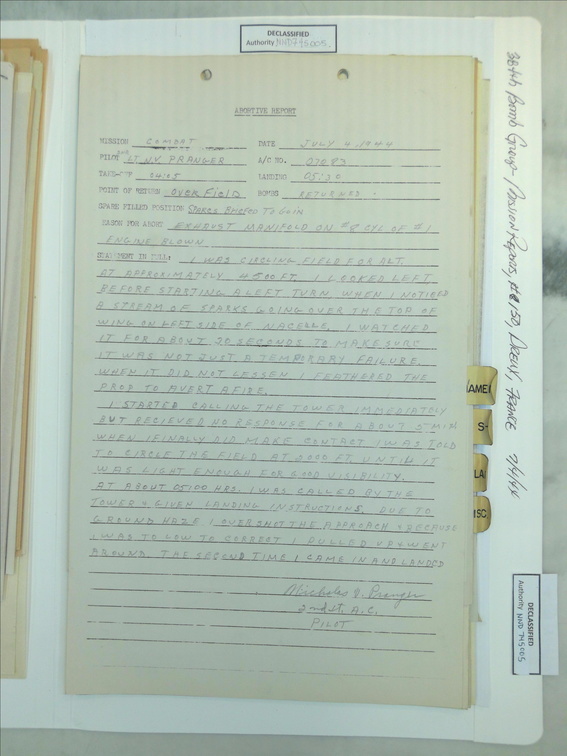 DECLASSIFIED
Authority NND745005
ABORTIVE REPORT
MISSION COMBAT DATE JULY 4, 1944
PILOT 2nd LT. N.V. PRANGER A/C NO. 07683
TAKE-OFF 04:05 LANDING 05:20
POINT OF RETURN OVER FIELD BOMBS RETURNED
SPARE FILLED POSITION SPARES BRIEFED TO GO IN
REASON FOR ABORT EXHAUST MANIFOLD ON #8 CYL OF #1
ENGINE BLOWN
STATEMENT IN FULL: I WAS CIRCLING FIELD FOR ALT.
AT APPROXIMATELY 4500 FT. I LOOKED LEFT
BEFORE STARTING A LEFT TURN WHEN I NOTICED
A STREAM OF SPARKS GOING OVER THE TOP OF
WING ON LEFT SIDE OF NACELLE. I WATCHED
IT FOR ABOUT 20 SECONDS TO MAKE SURE
IT WAS NOT JUST A TEMPORARY FAILURE.
WHEN IT DID NOT LESSEN I FEATHERED THE
PROP TO AVERT A FIRE.
I STARTED CALLING THE TOWER IMMEDIATELY
BUT RECIEVED NO RESPONSE FOR ABOUT 5 MIN
WHEN I FINALLY DID MAKE CONTACT I WAS TOLD
TO CIRCLE THE FIELD AT 2000 FT. UNTIL IT
WAS LIGHT ENOUGH FOR GOOD VISIBILITY.
AT ABOUT 0500 HRS. I WAS CALLED BY THE
TOWER & GIVEN LANDING INSTRUCTIONS. DUE TO
GROUND HAZE I OVERSHOT THE APPROACH & BECAUSE
I WAS TO LOW TO CORRECT I PULLED UP & WENT
AROUND. THE SECOND TIME I CAME IN AND LANDED
Nicholas V. Pranger
2nd Lt. A.C.
PILOT
384th Bomb Group, Mission Reports, #150, CREILLY, FRANCE 7/4/44
AME
S-
LA
SC
DECLASSIFIED
Authority NND 745005